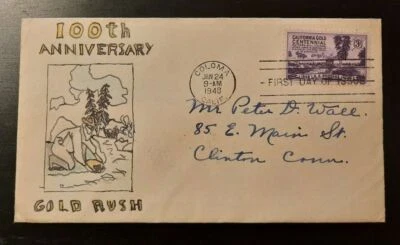 100th
ANNIVERSARY
GOLD RUSH
COLOMA
JAN 24
9-AM
1948
CALIF.
CALIFORNIA GOLD
CENTENNIAL
3¢
FIRST DAY OF ISSUE
Mr Peter D. Wall.
85 E. Main St.
Clinton Conn.